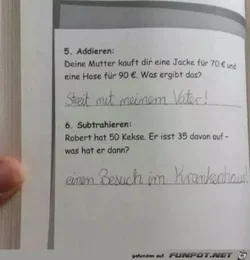 5. Addieren:
Deine Mutter kauft dir eine Jacke für 70 € und
eine Hose für 90 €. Was ergibt das?
Streit mit meinem Vater!
6. Subtrahieren:
Robert hat 50 Kekse. Er isst 35 davon auf -
was hat er dann?
einen Besuch im Krankenhaus!
gefunden auf FUNPOT.NET